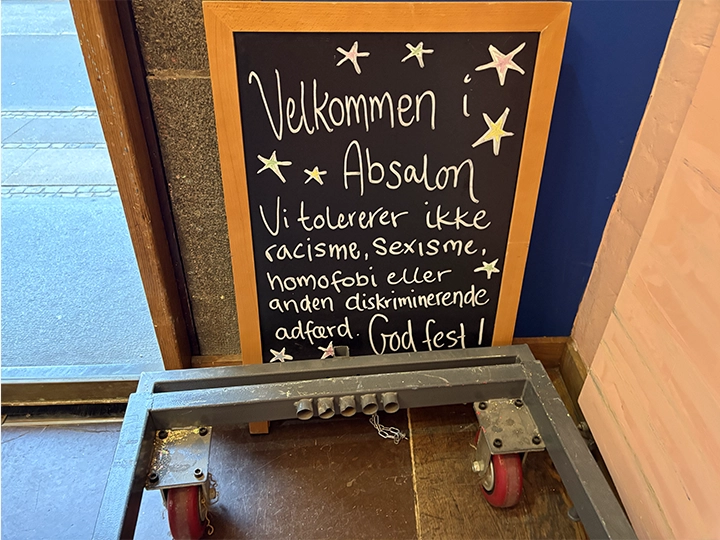 Velkommen i
Absalon
Vi tolererer ikke
racisme, sexisme,
homofobi eller
anden diskriminerende
adfærd. God fest!